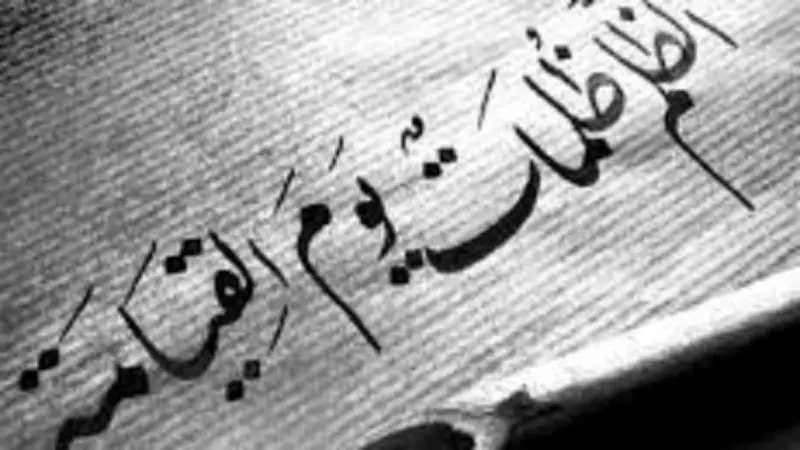 الظلم ظُلُمَاتٌ يَوْمَ القِيَامَةِ